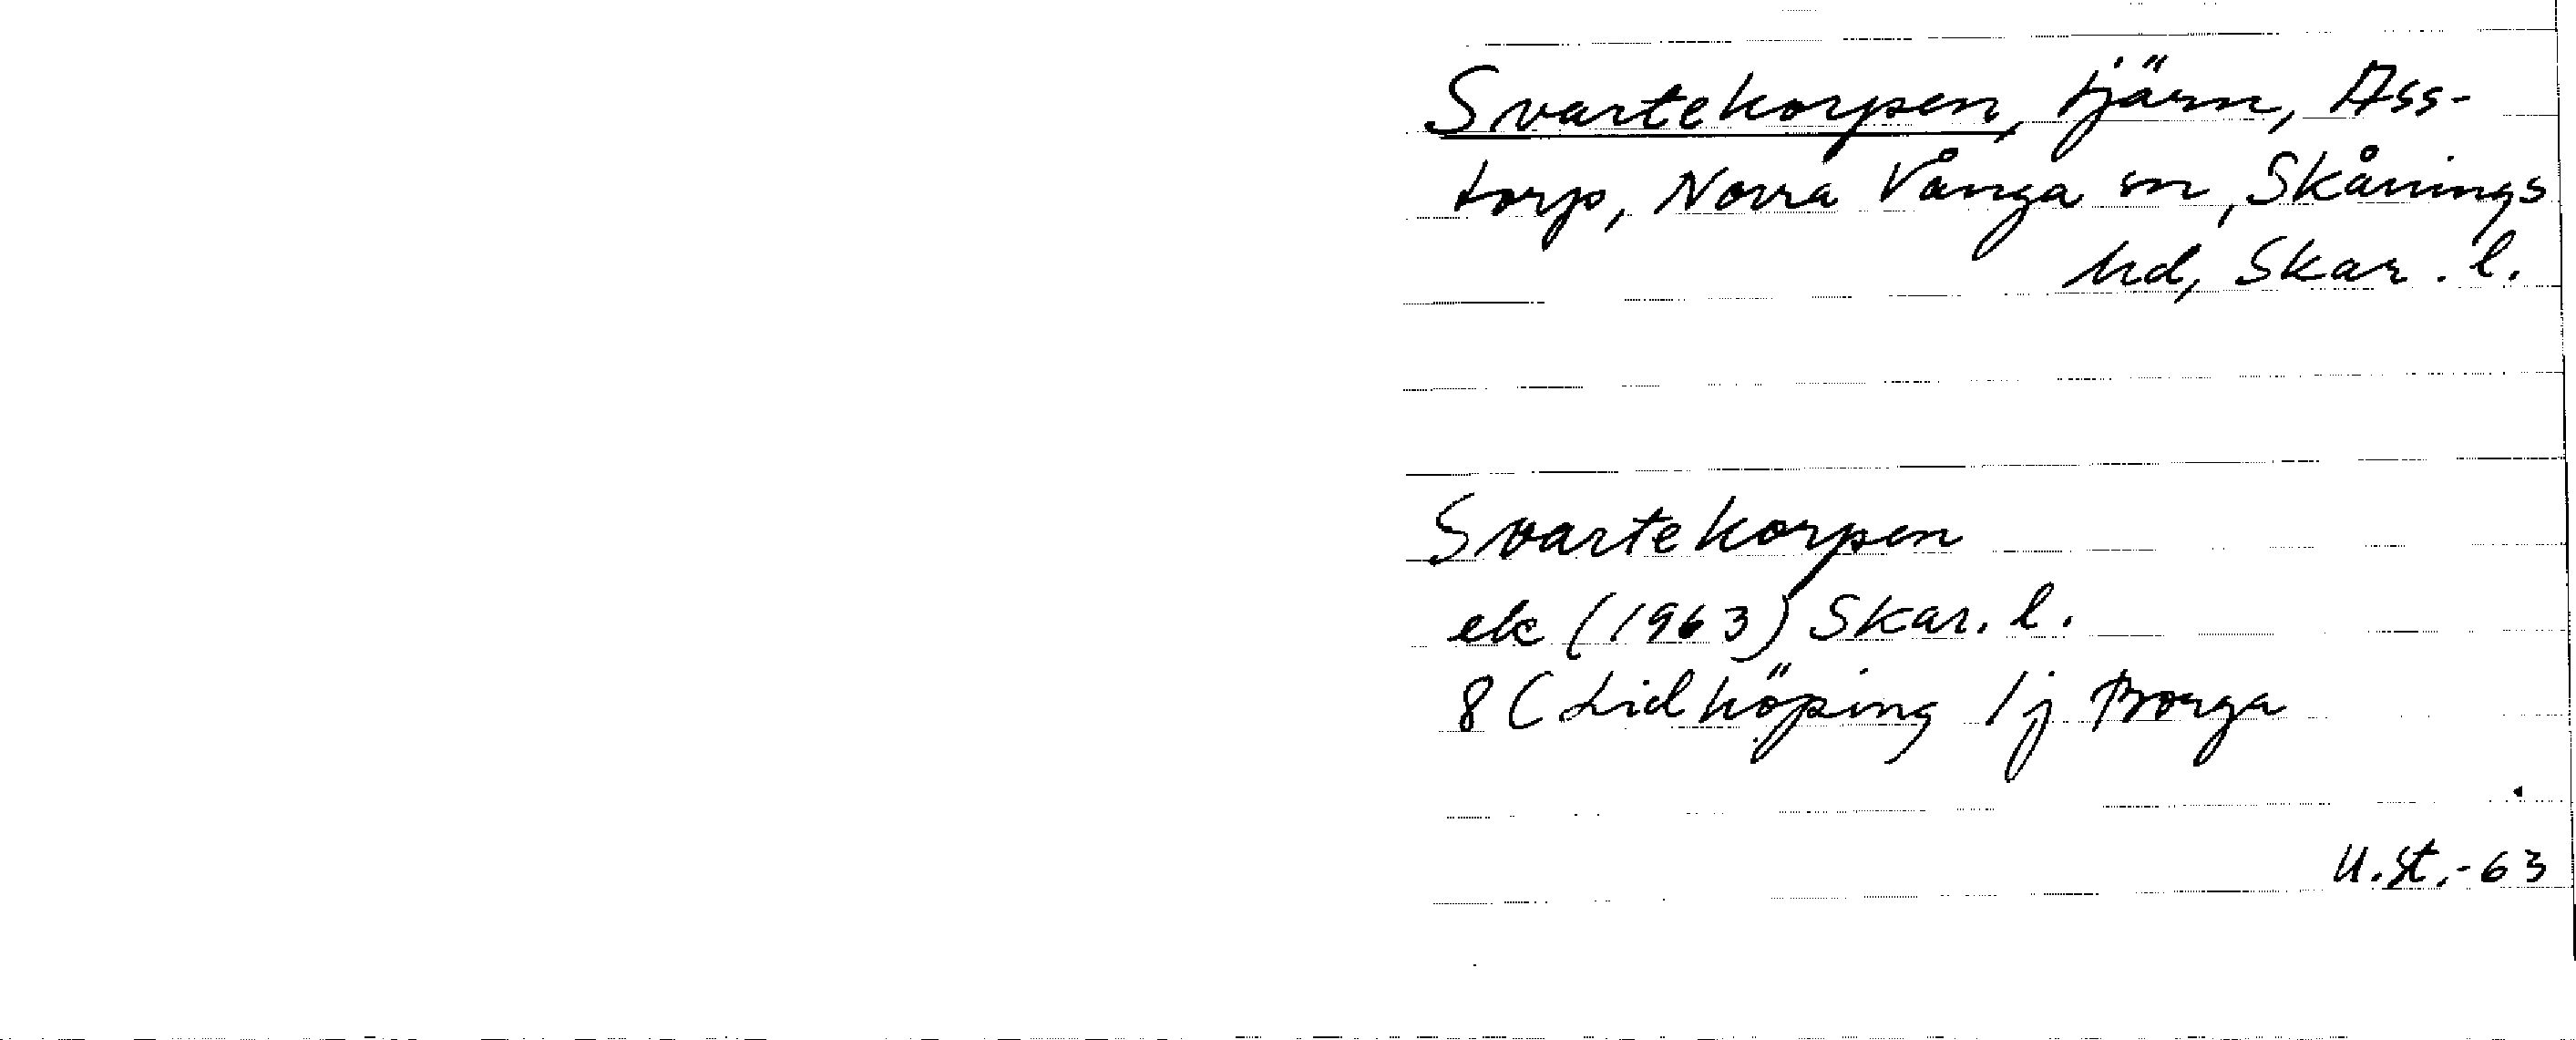 Svartekorpen, tjärn, Ass-
torp, Norra Vånga sn, Skånings
hd, Skar. l.
Svartekorpen
ek (1963) Skar. l.
8 C Lidköping 1j Borga
U.St.-63